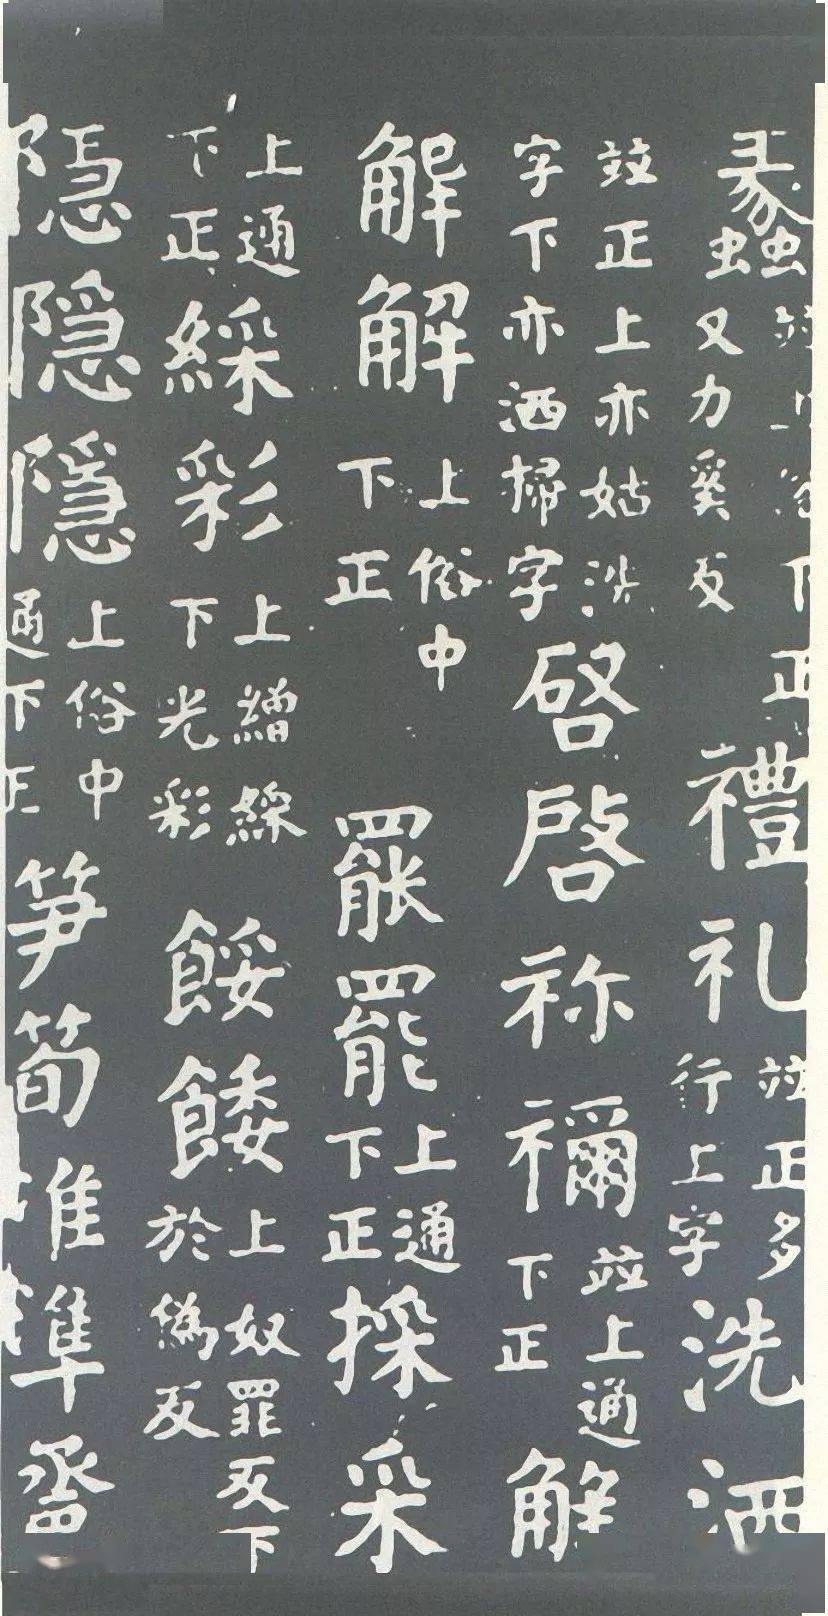 蠡竝上俗下正又力奚反禮礼竝正多行上字洗洒
竝正上亦姑洗字下亦洒掃字啓啓祢禰竝上通下正解
解解上俗中下正罷罷上通下正採采
上通下正綵彩上繒綵下光彩餒餧上奴罪反下於偽反
隐隐隱上俗中通下正笋筍准準